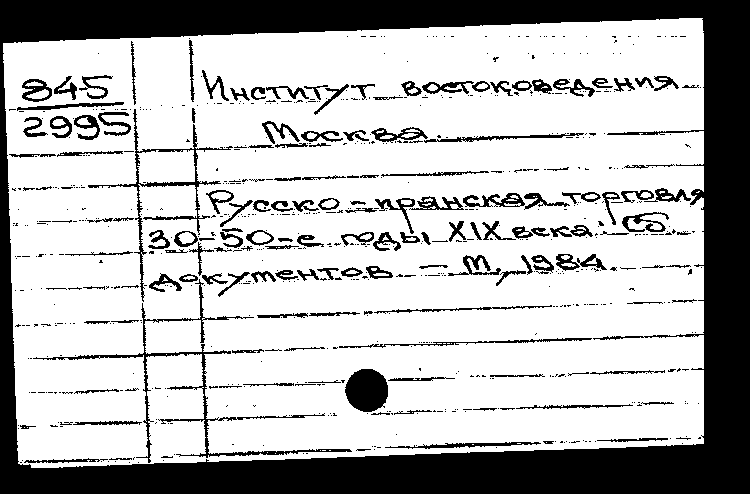 845
2995
Институт востоковедения
Москва.
Русско-иранская торговля
30-50-е годы XIX века: Сб.
документов. – М., 1984.